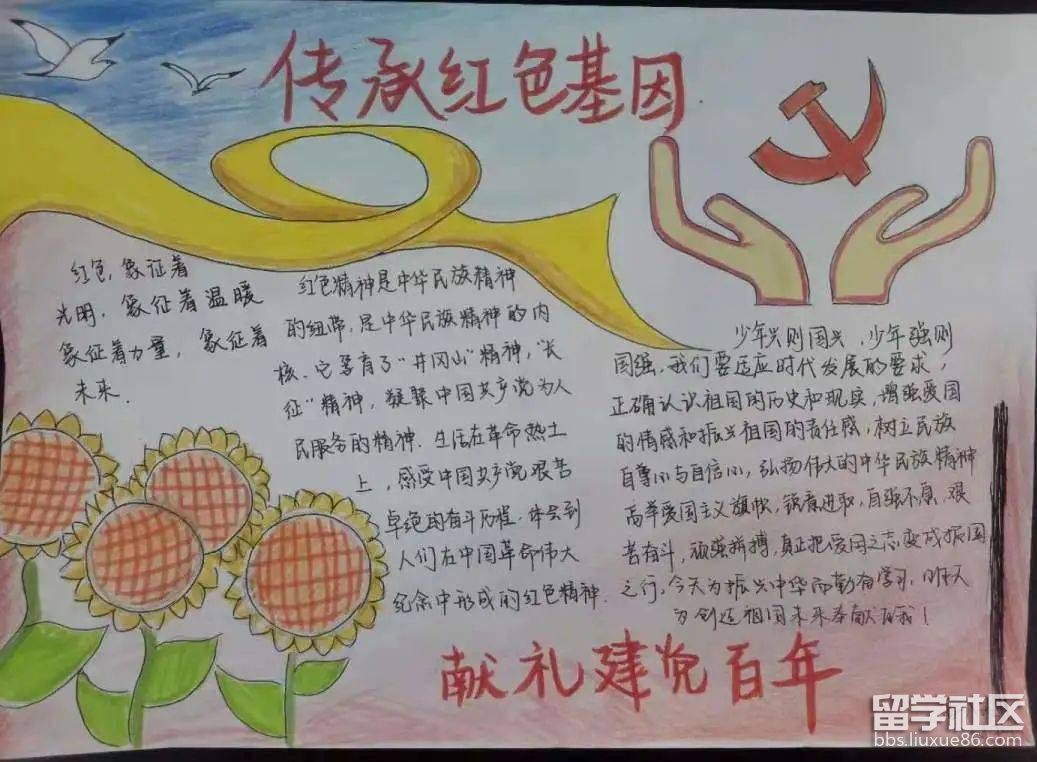 传承红色基因
红色，象征着
光明，象征着温暖
象征着力量，象征着
未来.
红色精神是中华民族精神
的纽带，是中华民族精神的内
核、它孕育了“井冈山”精神，“长
征”精神，凝聚中国共产党为人
民服务的精神. 生活在革命热土
上，感受中国共产党艰苦
卓绝的奋斗历程，体会到
人们在中国革命伟大
纪念中形成的红色精神.
少年兴则国兴，少年强则
国强，我们要适应时代发展的要求，
正确认识祖国的历史和现实，增强爱国
的情感和振兴祖国的责任感，树立民族
自尊心与自信心，弘扬伟大的中华民族精神
高举爱国主义旗帜，锐意进取，自强不息，艰
苦奋斗，顽强拼搏，真正把爱国之志变成报国
之行，今天为振兴中华而勤奋学习，明天
为创造祖国未来奉献
献礼建党百年
留学社区
bbs.liuxue86.com